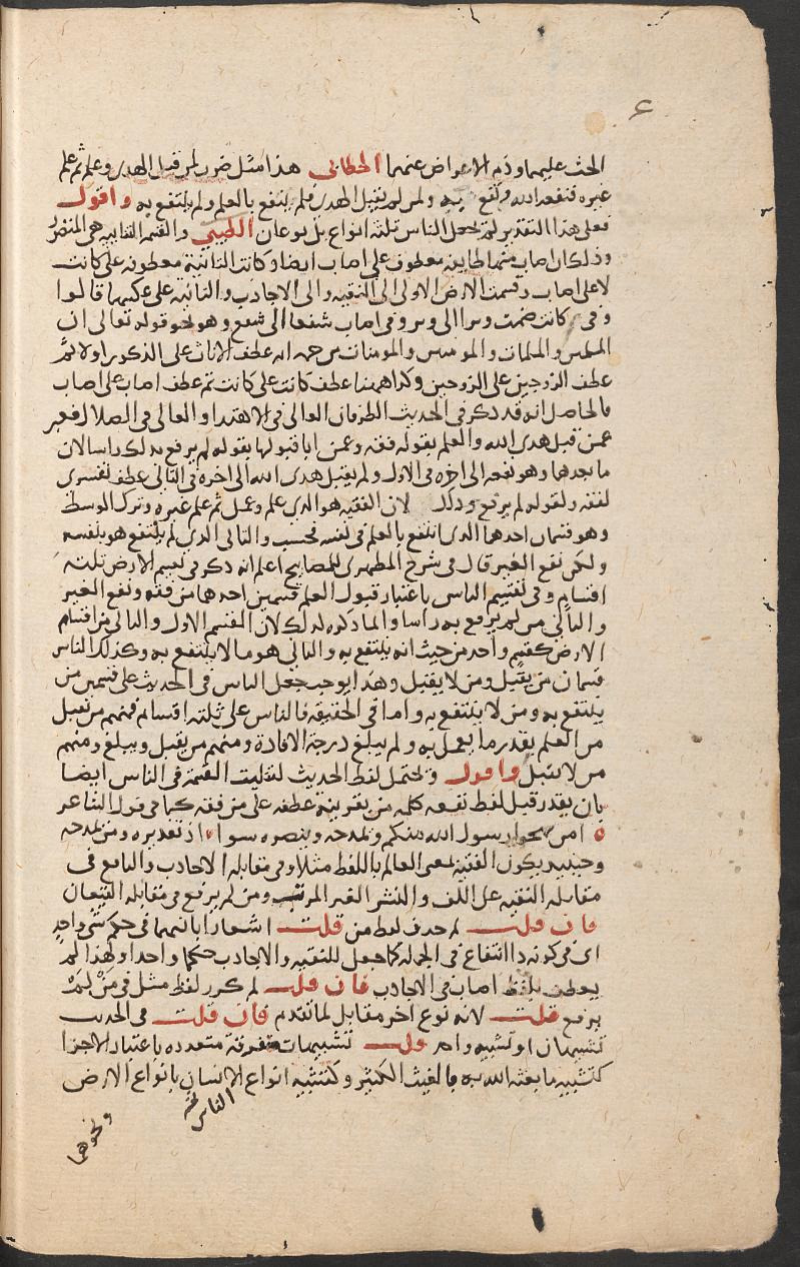 ٤
الحث عليهما وذم الاعراض عنهما الخطابي هذا مثل ضرب لمن قبل الهدى وعلم ثم علم
غيره فنفعه الله ونفع به ولمن لم يقبل الهدى فلم ينتفع بالعلم ولم ينتفع به واقول
فعلى هذا التقدير لم يجعل الناس ثلثة انواع بل نوعان الطيبي والقسمة الثانية هي المتصور
وذلك ان اصاب منها طايفة معطوف على اصاب ايضا وكانت الثانية معطوفة على كانت
لا على اصاب وقسمت الارض الاولى الى النقيه والى الاجادب والثانية على عكسها قالوا
وفي كانت ضمت وترا الى وتر وفي اصاب شفعا الى شفع وهو نحو قوله تعالى ان
المسلمين والمسلمات والمومنين والمومنات من جهة انه عطف الاناث على الذكور اولا ثم
عطف الزوجين على الزوجين وكذا ههنا عطف كانت على كانت ثم عطف اصاب على اصاب
فالحاصل انه قد ذكر في الحديث الطرفان العالي في الاهتداء والعالي في الضلال فعبر
عمن قبل هدى الله والعلم بقوله فقه وعمن ابا قبولها بقوله لم يرفع بذلك راسا لان
ما بعدها وهو نفعه الى اخره في الاول ولم يقبل هدى الله الى اخره في الثاني عطف تفسيري
لفقه ولقوله لم يرفع وذلك لان الفقيه هو الذي علم وعمل ثم علم غيره وترك الوسط
وهو قسمان احدهما الذي انتفع بالعلم في نفسه فحسب والثاني الذي لم ينتفع هو بنفسه
ولكن نفع الغير قال في شرح المظهري للمصابيح اعلم انه ذكر في تقسيم الارض ثلثة
اقسام وفي تقسيم الناس باعتبار قبول العلم قسمين احدهما من فقه ونفع الغير
والثاني من لم يرفع به راسا وانما ذكره لذلك لان القسم الاول والثاني من اقسام
الارض كقسم واحد من حيث انه ينتفع به والثاني هو ما لا ينتفع به وكذلك الناس
قسمان من يقبل ومن لا يقبل وهذا يوجب جعل الناس في الحديث على قسمين من
ينتفع به ومن لا ينتفع به واما في الحقيقة فالناس على ثلثة اقسام فمنهم من يقبل
من العلم بقدر ما يعمل به ولم يبلغ درجة الافادة ومنهم من يقبل ويبلغ ومنهم
من لا يقبل واقول ويحتمل لفظ الحديث لتثليث القسمة في الناس ايضا
بان يقدر قبل لفظ نفعه كلمه من بقرينة عطفه على من فقه كما في قول الشاعر
امن يهجو رسول الله منكم ويمدحه وينصره سواء اذ تقديره ومن يمدحه
وحينيذ يكون الفقيه بمعنى العالم باللفظ مثلا وفي مقابله الاجادب والنافع في
مقابله النقيه على اللف والنشر الغير المرتب ومن لم يرفع في مقابله القيعان
فان قلت لم حذف لفظ من قلت اشعارا بانهما في حكم شي واحد
اي في كونه ذا انتفاع في الجملة كما جعل للنقيه والاجادب حكما واحدا ولهذا لم
يعطف بلفظ اصاب في الاجادب فان قلت لم كرر لفظ مثل في من لم
يرفع قلت لانه نوع اخر مقابل لما تقدم فان قلت في الحديث
تشبيهان او تشبيه واحد قلت تشبيهات متفرقة متعدده باعتبار الاجزا
كتشبيه ما بعثه الله به بالغيث الكثير وكتشبيه انواع الانسان بانواع الارض
الناس
ونحوهما